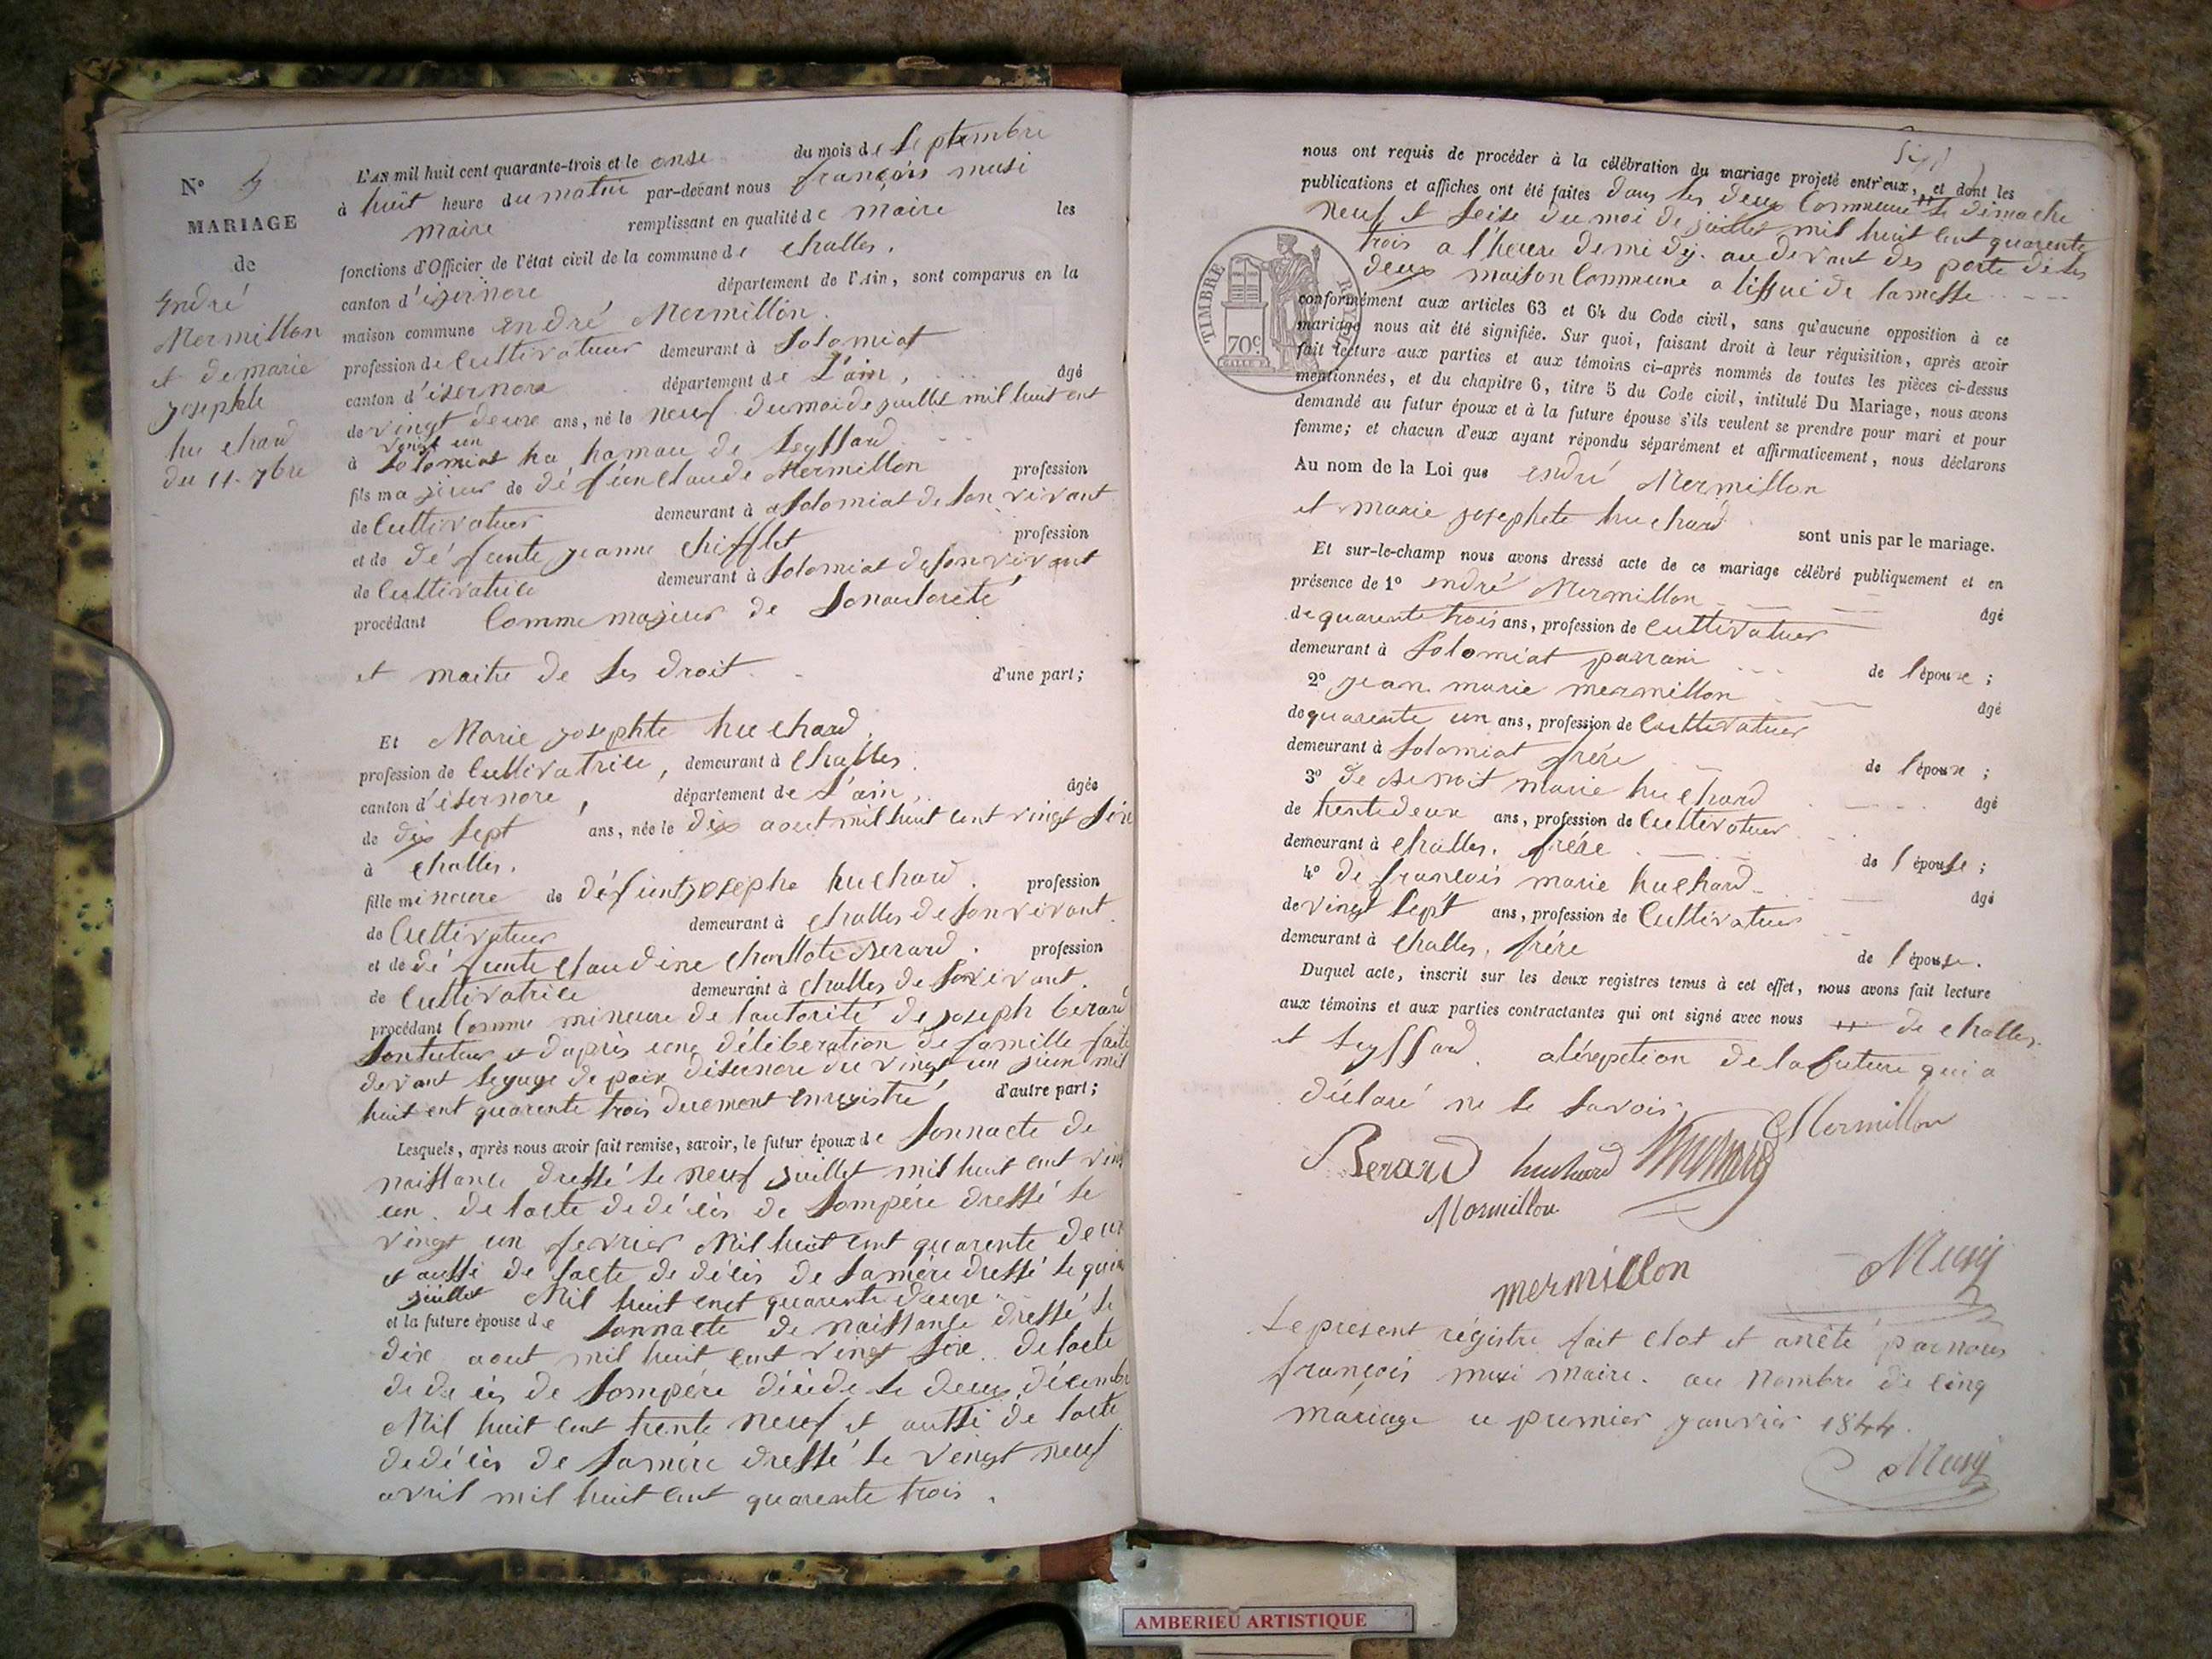 N° 5
MARIAGE
de
André
Mermillon
et de marie
josephte
huchard
du 11. 7bre
L'AN mil huit cent quarante-trois et le onse du mois de Septembre
à huit heure du matin par-devant nous françois musi
maire remplissant en qualité de maire les
fonctions d'Officier de l'état civil de la commune de challes.
canton d'isernore département de l'Ain, sont comparus en la
maison commune André Mermillon.
profession de Cultivateur demeurant à Solomiat
canton d'isernore département de L'ain, âgé
de vingt deux ans, né le neuf du moi de juillet mil huit cent
vengt un
à Solomiat hamau de Seyssard
fils majeur de défun Claude Mermillon profession
de Cultivateur demeurant à Solomiat de son vivant
et de défunte jeanne Chifflet profession
de Cultivatrice demeurant à Solomiat de son vivant
procédant Comme majeur de Sonautorité
et maitre de Ses droit. d'une part;
Et Marie josephte huchard
profession de Cultivatrice, demeurant à Challes.
canton d'isernore, département de L'ain, âgée
de dix Sept ans, née le dix aout mil huit cent vingt Six
à Challes.
fille mineure de défunt josephe huchard. profession
de Cultivateur demeurant à Challes de Son vivant.
et de défunte Claudine Charllote Berard. profession
de Cultivatrice demeurant à Challes de Son vivant.
procédant Comme mineure de lautorité de joseph berard
Sontuteur et daprès une délibération de famille faite
devant lejuge de paix disernore du vingt un juin mil
huit cent quarente trois duement enregistré d'autre part;
Lesquels, après nous avoir fait remise, savoir, le futur époux de Sonnacte de
naissance dressé le neuf juillet mil huit cent vingt
un. de lacte de décès de Sompère dressé le
vingt un fevrier Mil huit cent quarente deux
et aussi de lacte de décès de Samère dressé le
juillet Mil huit cent quarente deux
et la future épouse de Sonnacte de naissance dressé le
dix aout mil huit cent vingt Six. de lacte
de décès de Sompére décéde le deux décembre
Mil huit cent trente neuf et aussi de lacte
dedécès de Samère dressé le vengt neuf
avril mil huit cent quarente trois.
nous ont requis de procéder à la célébration du mariage projeté entr'eux, et dont les
publications et affiches ont été faites dans les deux Commune le dimache
neuf et Seise du moi de juillet mil huit cent quarente
trois a l'heure de mi dij. au devant des porte de les
deux maison Commune a lissue de lamesse
TIMBRE ROYAL
70c
conformément aux articles 63 et 64 du Code civil, sans qu'aucune opposition à ce
mariage nous ait été signifiée. Sur quoi, faisant droit à leur réquisition, après avoir
fait lecture aux parties et aux témoins ci-après nommés de toutes les pièces ci-dessus
mentionnées, et du chapitre 6, titre 5 du Code civil, intitulé Du Mariage, nous avons
demandé au futur époux et à la future épouse s'ils veulent se prendre pour mari et pour
femme; et chacun d'eux ayant répondu séparément et affirmativement, nous déclarons
Au nom de la Loi que André Mermillon
et marie josephete huchard sont unis par le mariage.
Et sur-le-champ nous avons dressé acte de ce mariage célébré publiquement et en
présence de 1° André Mermillon âgé
de quarente trois ans, profession de Cultivateur
demeurant à Solomiat parrani de l'épouse;
2° jean marie mermillon âgé
de quarente un ans, profession de Cultivateur
demeurant à Solomiat frére de l'épouse;
3° de Benoit marie huchard âgé
de trentedeux ans, profession de Cultivateur
demeurant à Challes. frére de l'épouse;
4° de françois marie huchard âgé
de vingt Sept ans, profession de Cultivateur
demeurant à Challes, frére de l'épouse.
Duquel acte, inscrit sur les deux registres tenus à cet effet, nous avons fait lecture
aux témoins et aux parties contractantes qui ont signé avec nous de Challes
et Seyssard. aléxpetion de lafuture qui a
déclaré ne le Savoir
Mermillon
Berard huchard
Mermillon
mermillon Musy
Le present régistre fait clot et arrêté parnous
françois musi maire. au Nombre de cinq
mariage ce premier janvier 1844.
Musy
AMBERIEU ARTISTIQUE